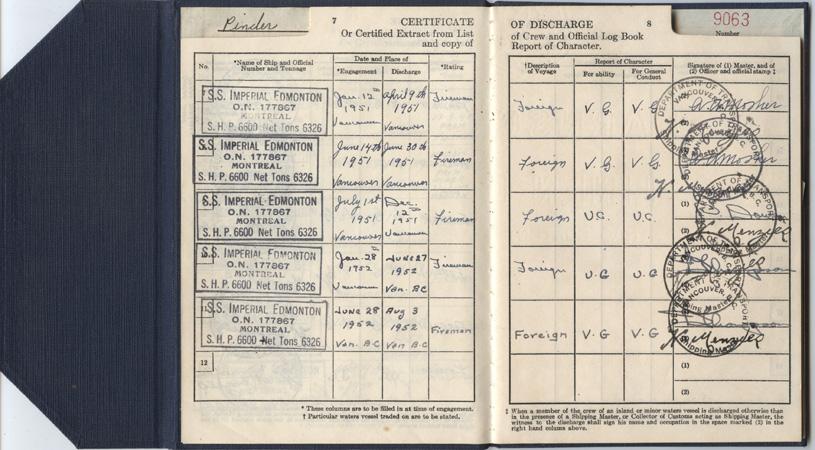 Pinder
7
CERTIFICATE
Or Certified Extract from List
and copy of
No.
*Name of Ship and Official Number and Tonnage
Date and Place of
*Engagement
Discharge
*Rating
S.S. IMPERIAL EDMONTON
O.N. 177867
MONTREAL
S. H. P. 6600 Net Tons 6326
Jan. 12th 1951 Vancouver
April 9th 1951 Vancouver
Fireman
S.S. IMPERIAL EDMONTON
O.N. 177867
MONTREAL
S. H. P. 6600 Net Tons 6326
June 14th 1951 Vancouver
June 30th 1951 Vancouver
Fireman
S.S. IMPERIAL EDMONTON
O.N. 177867
MONTREAL
S. H. P. 6600 Net Tons 6326
July 1st 1951 Vancouver
Dec. 12 1951 Vancouver
Fireman
S.S. IMPERIAL EDMONTON
O.N. 177867
MONTREAL
S. H. P. 6600 Net Tons 6326
Jan. 28 1952 Vancouver
June 27 1952 Van. BC
Fireman
S.S. IMPERIAL EDMONTON
O.N. 177867
MONTREAL
S. H. P. 6600 Net Tons 6326
June 28 1952 Van. B.C
Aug 3 1952 Van. B.C
Fireman
12
* These columns are to be filled in at time of engagement.
† Particular waters vessel traded on are to be stated.
OF DISCHARGE
8
of Crew and Official Log Book
Report of Character.
9063
Number
†Description of Voyage
Report of Character
For ability
For General Conduct
Signature of (1) Master, and of (2) Officer and official stamp ‡
Foreign V. G. V. G.
Mosher
Foreign V. G. V. G.
Mosher
Foreign V.G. V.G.
(1)
(2) Menzell
Foreign V.G V.G
Foreign V.G V.G
Menzell
DEPARTMENT OF TRANSPORT
VANCOUVER, B.C.
Shipping Master
(1)
(2)
‡ When a member of the crew of an inland or minor waters vessel is discharged otherwise than
in the presence of a Shipping Master, or Collector of Customs acting as Shipping Master, the
witness to the discharge shall sign his name and occupation in the space marked (2) in the
right hand column above.